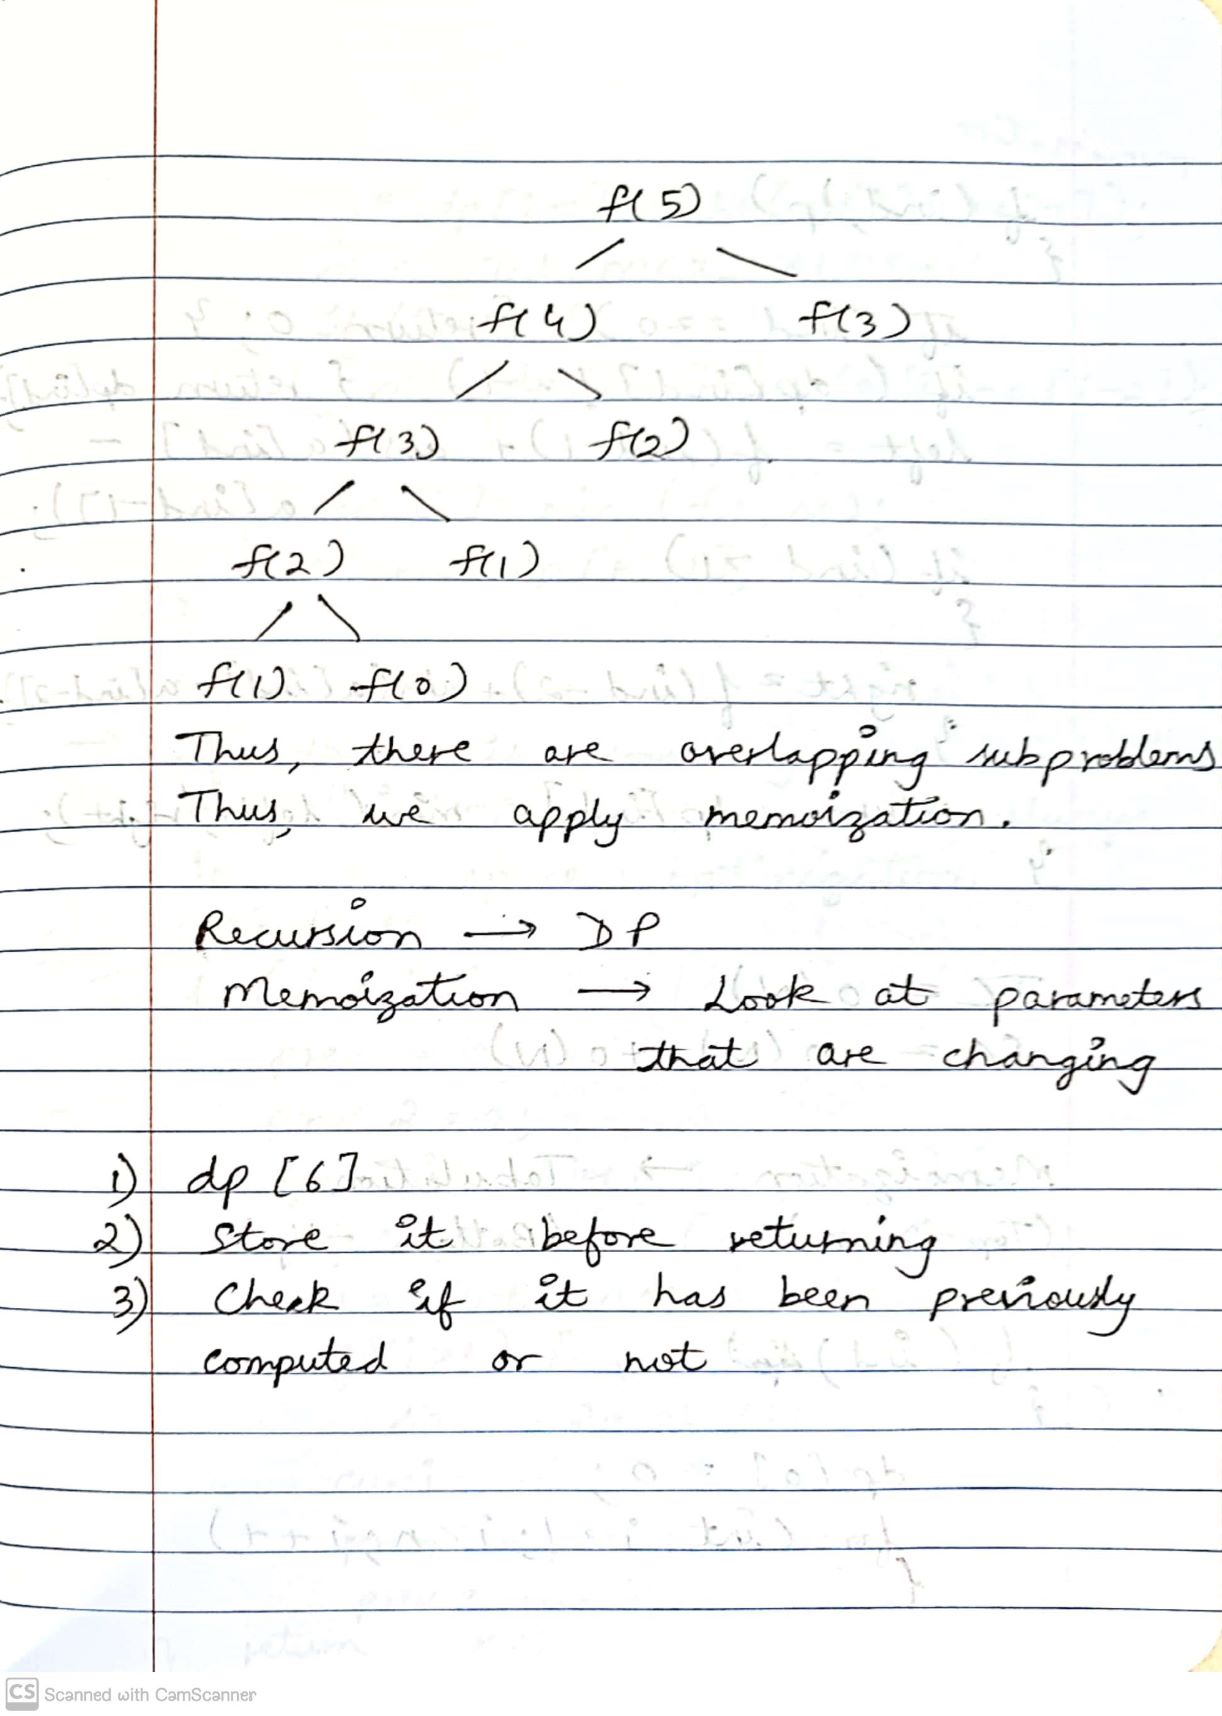 f(5)
f(4) f(3)
f(3) f(2)
f(2) f(1)
f(1) f(0)
Thus, there are overlapping subproblems
Thus, we apply memoization.
Recursion → DP
Memoization → Look at parameters
that are changing
1) dp [6]
2) Store it before returning
3) Check if it has been previously
computed or not
CS Scanned with CamScanner